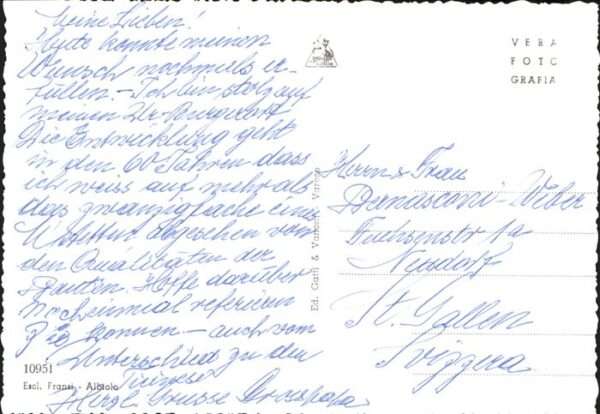 Meine Lieben!
Heute konnte meinen
Wunsch nochmals er-
füllen. - Ich bin stolz auf
meinen Ur-Burgerort
Die Entwicklung geht
in den 60 Jahren dass
ich weiss auf mehr als
das zwanzigfache eines
abgesehen von
den Qualitäten der
Bauten. Hoffe darüber
noch einmal referieren
zu können - auch vom
Unterschied zu den
Herzl. Grüsse Grosspapa
10951
Escl. Fransi -
Ed. Carli & Varese
VERA
FOTO
GRAFIA
Herrn & Frau
Bernasconi-Weber
Fuchsenstr 1a
Neudorf
St. Gallen
Svizzera